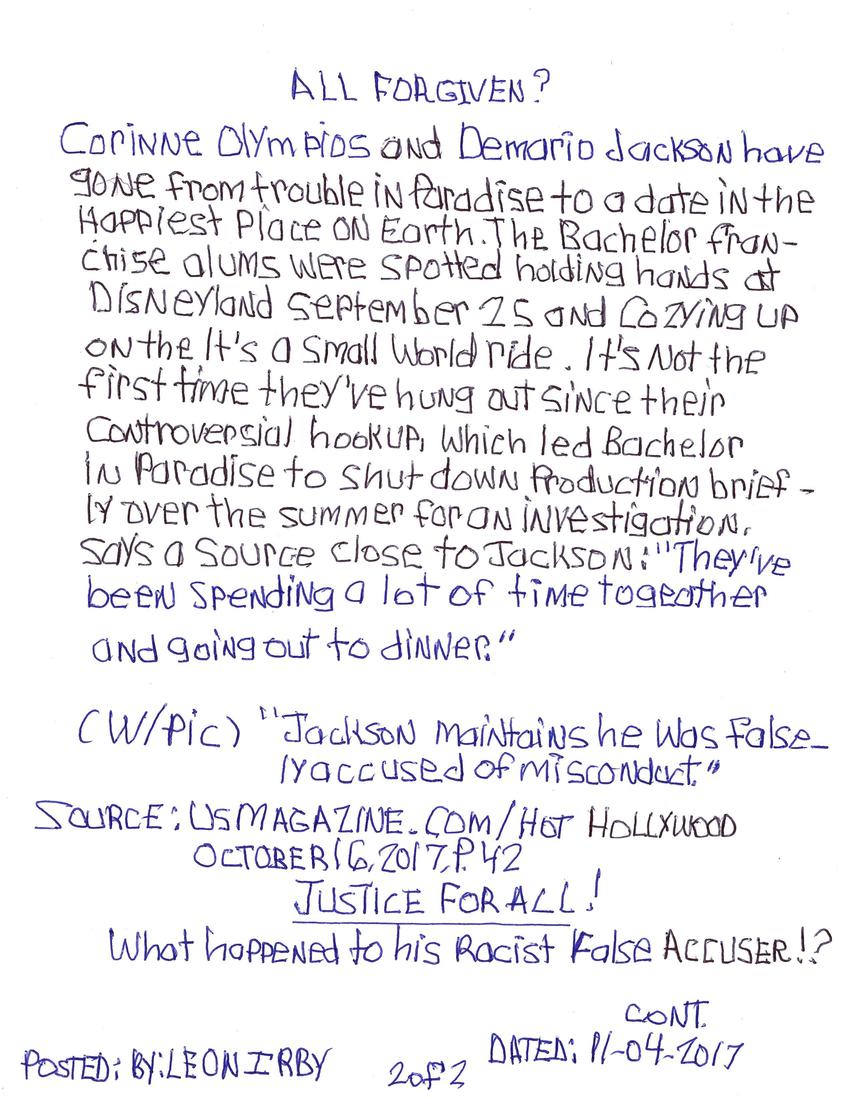 ALL FORGIVEN?
Corinne Olympios and Demario Jackson have
gone from trouble in Paradise to a date in the
Happiest Place on Earth. The Bachelor fran-
chise alums were spotted holding hands at
Disneyland September 25 and cozying up
on the It's a Small World ride. It's not the
first time they've hung out since their
controversial hookup, which led Bachelor
in Paradise to shut down production brief-
ly over the summer for an investigation.
Says a source close to Jackson: "They've
been spending a lot of time togeather
and going out to dinner."
(W/Pic) "Jackson maintains he was false-
ly accused of misconduct."
SOURCE: USMAGAZINE.COM/HOT HOLLYWOOD
OCTOBER 16, 2017, P. 42
JUSTICE FOR ALL!
What happened to his Racist False ACCUSER!?
CONT.
POSTED: BY: LEON IRBY 2 of 2 DATED: 11-04-2017